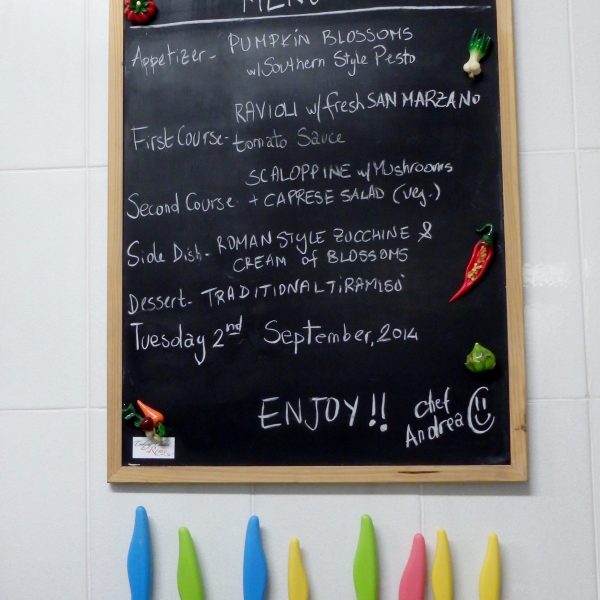 MENU
Appetizer - PUMPKIN BLOSSOMS
w/Southern Style Pesto
RAVIOLI w/fresh SAN MARZANO
First Course - tomato Sauce
SCALOPPINE w/Mushrooms
Second Course - + CAPRESE SALAD (veg.)
Side Dish - ROMAN STYLE ZUCCHINE &
CREAM of BLOSSOMS
Dessert - TRADITIONAL TIRAMISÚ
Tuesday 2nd September, 2014
ENJOY!! Chef
Andrea